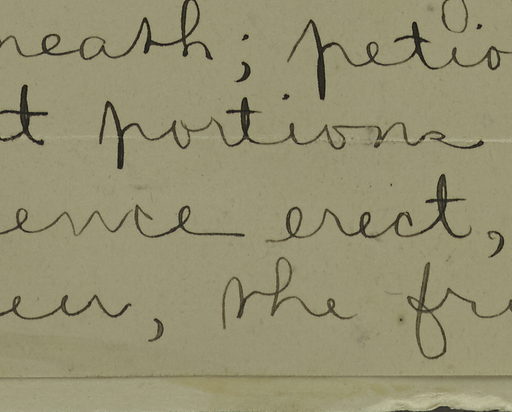 neath; petio
t portions
ence erect,
er, the fr